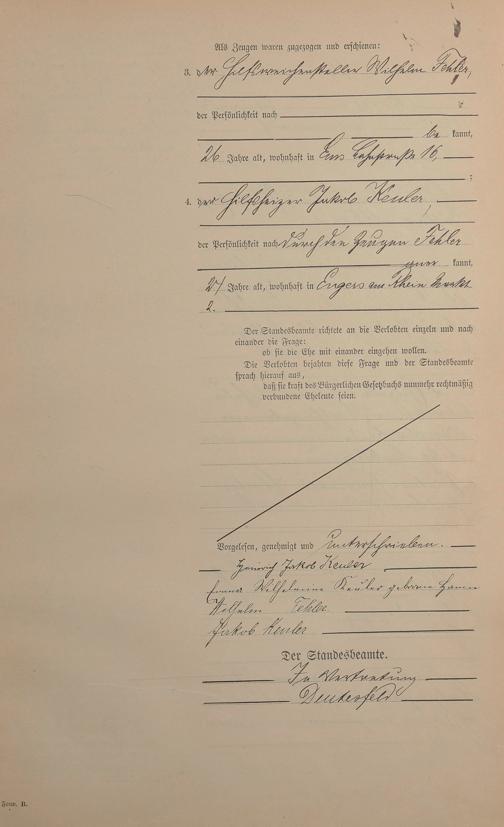 Als Zeugen waren zugezogen und erschienen:
3. der Hilfsweichensteller Wilhelm Fehler,
der Persönlichkeit nach
be kannt,
26 Jahre alt, wohnhaft in Ems 16,
;
4. der Hilfsheizer Jakob Keuler,
der Persönlichkeit nach durch den Zeugen Fehler
aner kannt,
27 Jahre alt, wohnhaft in Engers am Rhein Markt
2.
Der Standesbeamte richtete an die Verlobten einzeln und nach
einander die Frage:
ob sie die Ehe mit einander eingehen wollen.
Die Verlobten bejahten diese Frage und der Standesbeamte
sprach hierauf aus,
daß sie kraft des Bürgerlichen Gesetzbuchs nunmehr rechtmäßig
verbundene Eheleute seien.
Vorgelesen, genehmigt und unterschrieben.
Heinrich Jakob Keuler
Emma Wilhelmine Keuler geborene
Wilhelm Fehler
Jakob Keuler
Der Standesbeamte.
In Vertretung
Deutesfeld
Form. B.